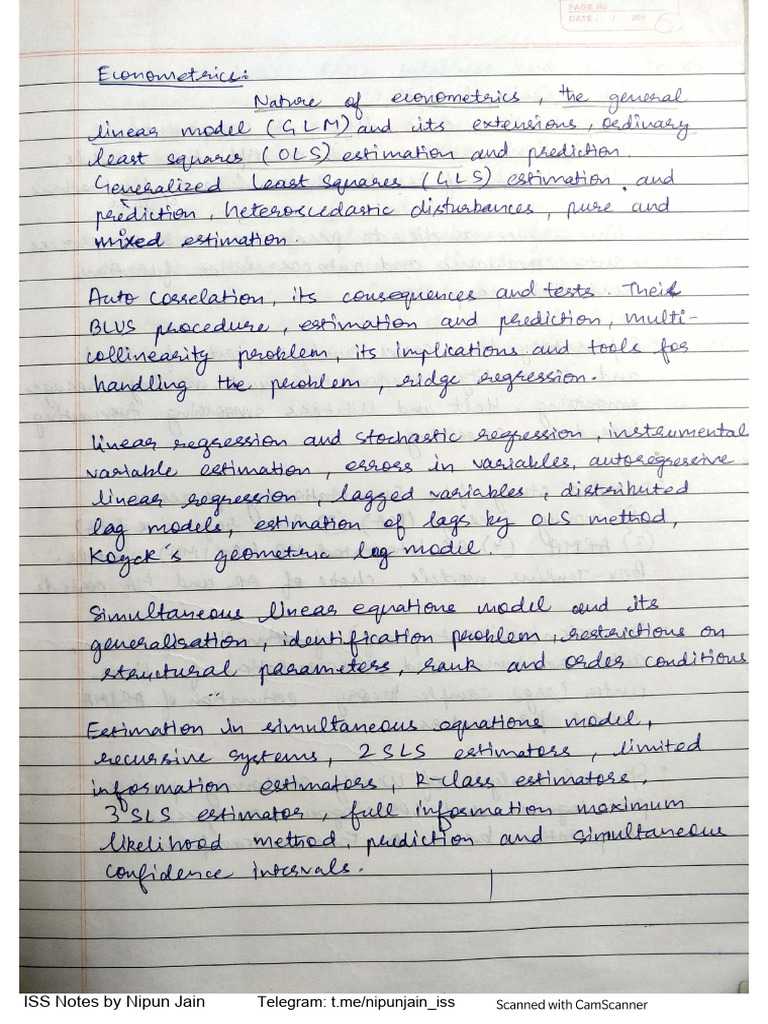 PAGE No.
DATE: / 201 6
Econometrics:
Nature of econometrics, the general
linear model (GLM) and its extensions, ordinary
least squares (OLS) estimation and prediction.
Generalized least squares (GLS) estimation. and
prediction, heteroscedastic disturbances, pure and
mixed estimation.
Auto Correlation, its consequences and tests. Their
BLUS procedure, estimation and prediction, multi-
collinearity problem, its implications and tools for
handling the problem, ridge regression.
linear regression and stochastic regression, instrumental
variable estimation, errors in variables, autoregressive
linear regression, lagged variables, distributed
lag models, estimation of lags by OLS method,
Koyck's geometric lag model.
Simultaneous linear equations model and its
generalisation, identification problem, restrictions on
structural parameters, rank and order conditions
Estimation in simultaneous equations model,
recursive systems, 2 SLS estimators, limited
information estimators, k-class estimators,
3 SLS estimator, full information maximum
likelihood method, prediction and simultaneous
confidence intervals.
ISS Notes by Nipun Jain Telegram: t.me/nipunjain_iss Scanned with CamScanner